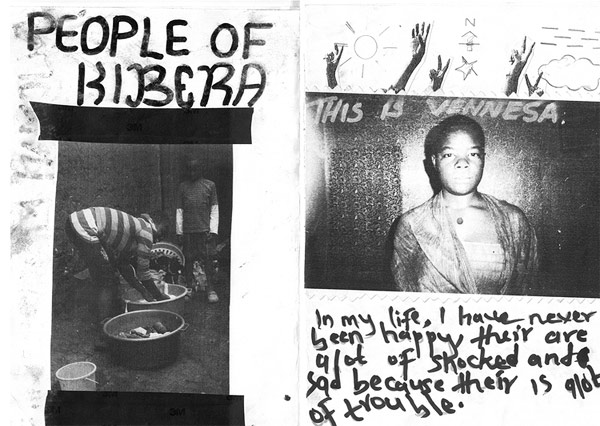 PEOPLE OF
KIBERA
THIS IS VENNESA.
In my life, I have never
been happy, their are
alot of shocked and
sad because their is alot
of trouble.